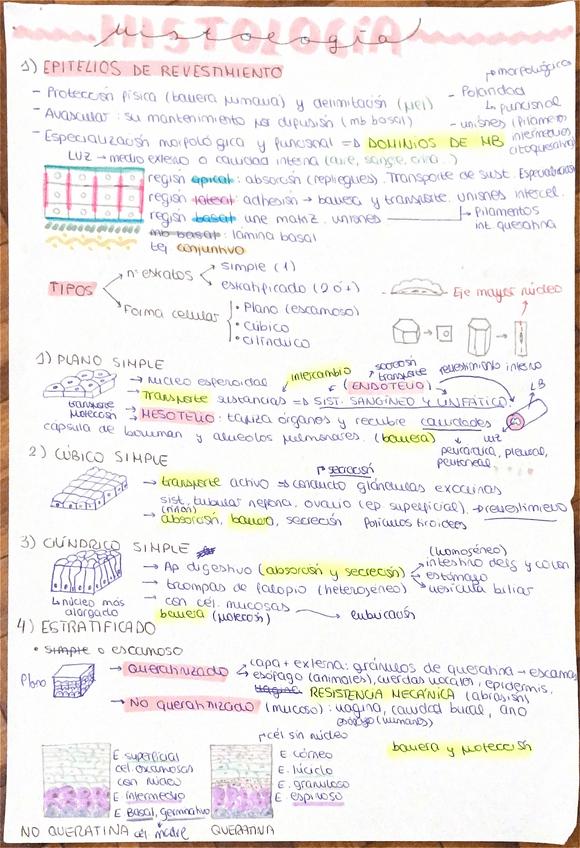 HISTOLOGÍA
Histología
1) EPITELIOS DE REVESTIMIENTO
- Protección física (barrera humana) y delimitación (piel)
- Avascular: su mantenimiento por difusión (mb basal)
- Especialización morfológica y funcional => DOMINIOS DE MB
- Polaridad
morfológica
funcional
- uniones (filamentos
intermedios
citoqueratina)
LUZ → medio externo o cavidad interna (aire, sangre, orina..)
región apical: absorción (repliegues). Transporte de sust. Especializacións
región lateral: adhesión → barrera y transporte. uniones intercel.
región basal: une matriz. uniones → Filamentos
int. queratina
mb basal: lámina basal
tej conjuntivo
TIPOS
nº estratos
simple (1)
estratificado (2 ó +)
Forma celular
• Plano (escamoso)
• Cúbico
• Cilíndrico
Eje mayor núcleo
1) PLANO SIMPLE
→ Núcleo esperoidal
intercambio
secreción
transporte
revestimiento interno
→ Transporte sustancias => SIST. SANGÍNEO Y LINFÁTICO
(ENDOTELIO)
LB
transporte
protección
→ MESOTELIO: tapiza órganos y recubre cavidades
luz
cápsula de bowman y alveolos pulmonares. (barrera)
pericárdica, pleural,
peritoneal
2) CÚBICO SIMPLE
secreción
→ transporte activo => conducto glándulas exocrinas
sist. tubular nefrona, ovario (ep superficial). → revestimiento
(riñón)
→ absorción, barrera, secreción folículos tiroideos
3) CILÍNDRICO SIMPLE
(homogéneo)
→ Ap digestivo (absorción y secreción)
intestino delg y colon
estómago
vesícula biliar
→ trompas de falopio (heterogéneo)
→ con cél. mucosas → lubricación
↳ núcleo más
alargado
barrera (protección)
4) ESTRATIFICADO
• simple o escamoso
Plano
→ queratinizado
capa + externa: gránulos de queratina → escamas
esófago (animales), cuerdas vocales, epidermis.
vagina RESISTENCIA MECÁNICA (abrasión)
→ No queratinizado (mucoso): vagina, cavidad bucal, ano
esófago (humanos)
cél sin núcleo
barrera y protección
E. superficial
cél. escamosas
con núcleo
E. intermedio
E. Basal, germinativo
cél. madre
E. córneo
E. lúcido
E. granuloso
E. espinoso
NO QUERATINA
QUERATINA